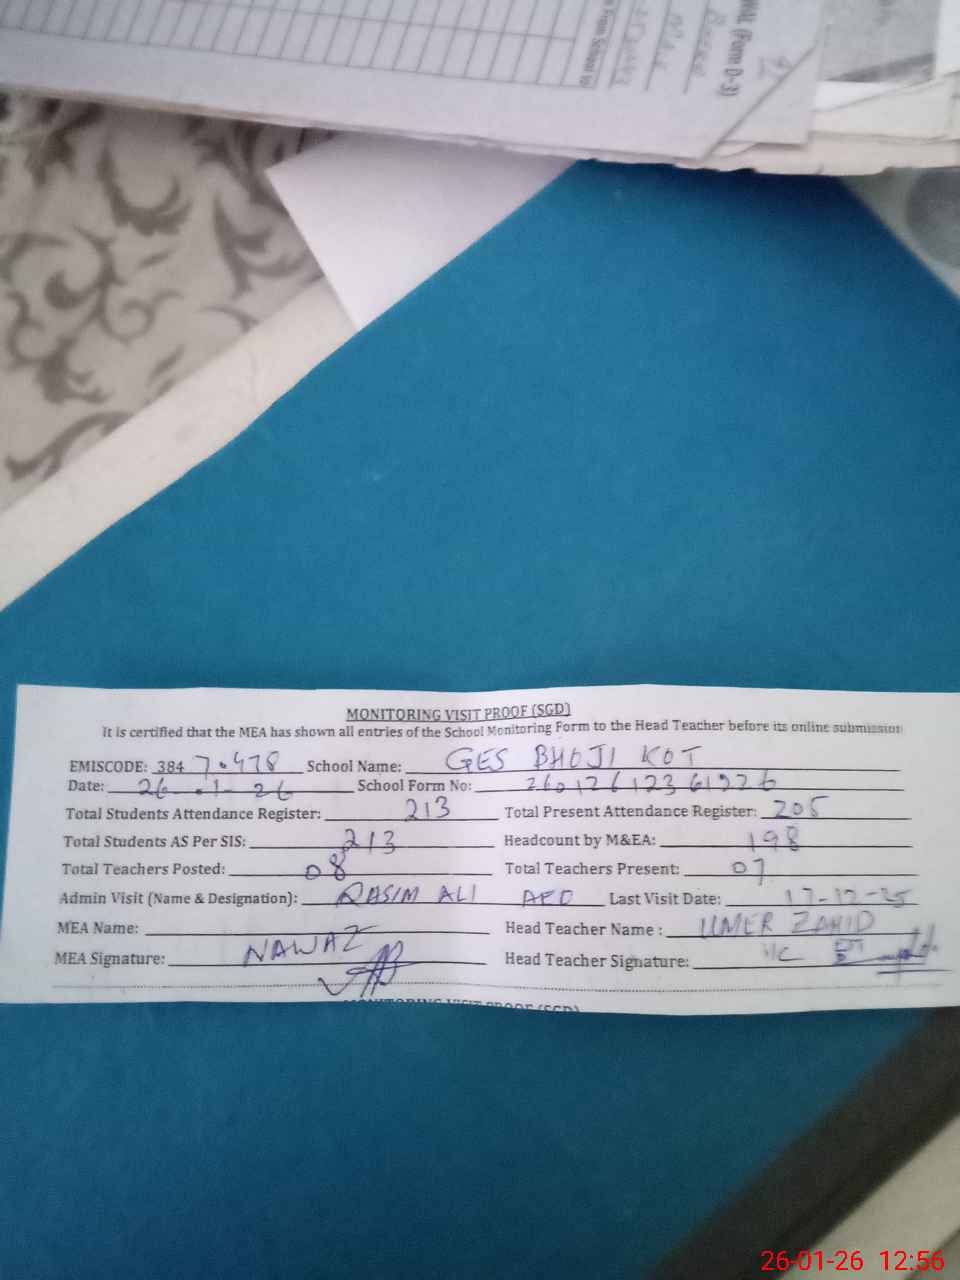 NAL (Form D-3)
MONITORING VISIT PROOF (SGD)
It is certified that the MEA has shown all entries of the School Monitoring Form to the Head Teacher before its online submission
EMISCODE: 384 7.478 School Name: GES BHOJI KOT
Date: 26-1-26 School Form No: 26012612361926
Total Students Attendance Register: 213 Total Present Attendance Register: 205
Total Students AS Per SIS: 213 Headcount by M&EA: 198
Total Teachers Posted: 08 Total Teachers Present: 07
Admin Visit (Name & Designation): QASIM ALI AEO Last Visit Date: 17-12-25
MEA Name: Head Teacher Name : UMER ZAHID
MEA Signature: NAWAZ Head Teacher Signature: I/C EST
MONITORING VISIT PROOF (SGD)
26-01-26 12:56